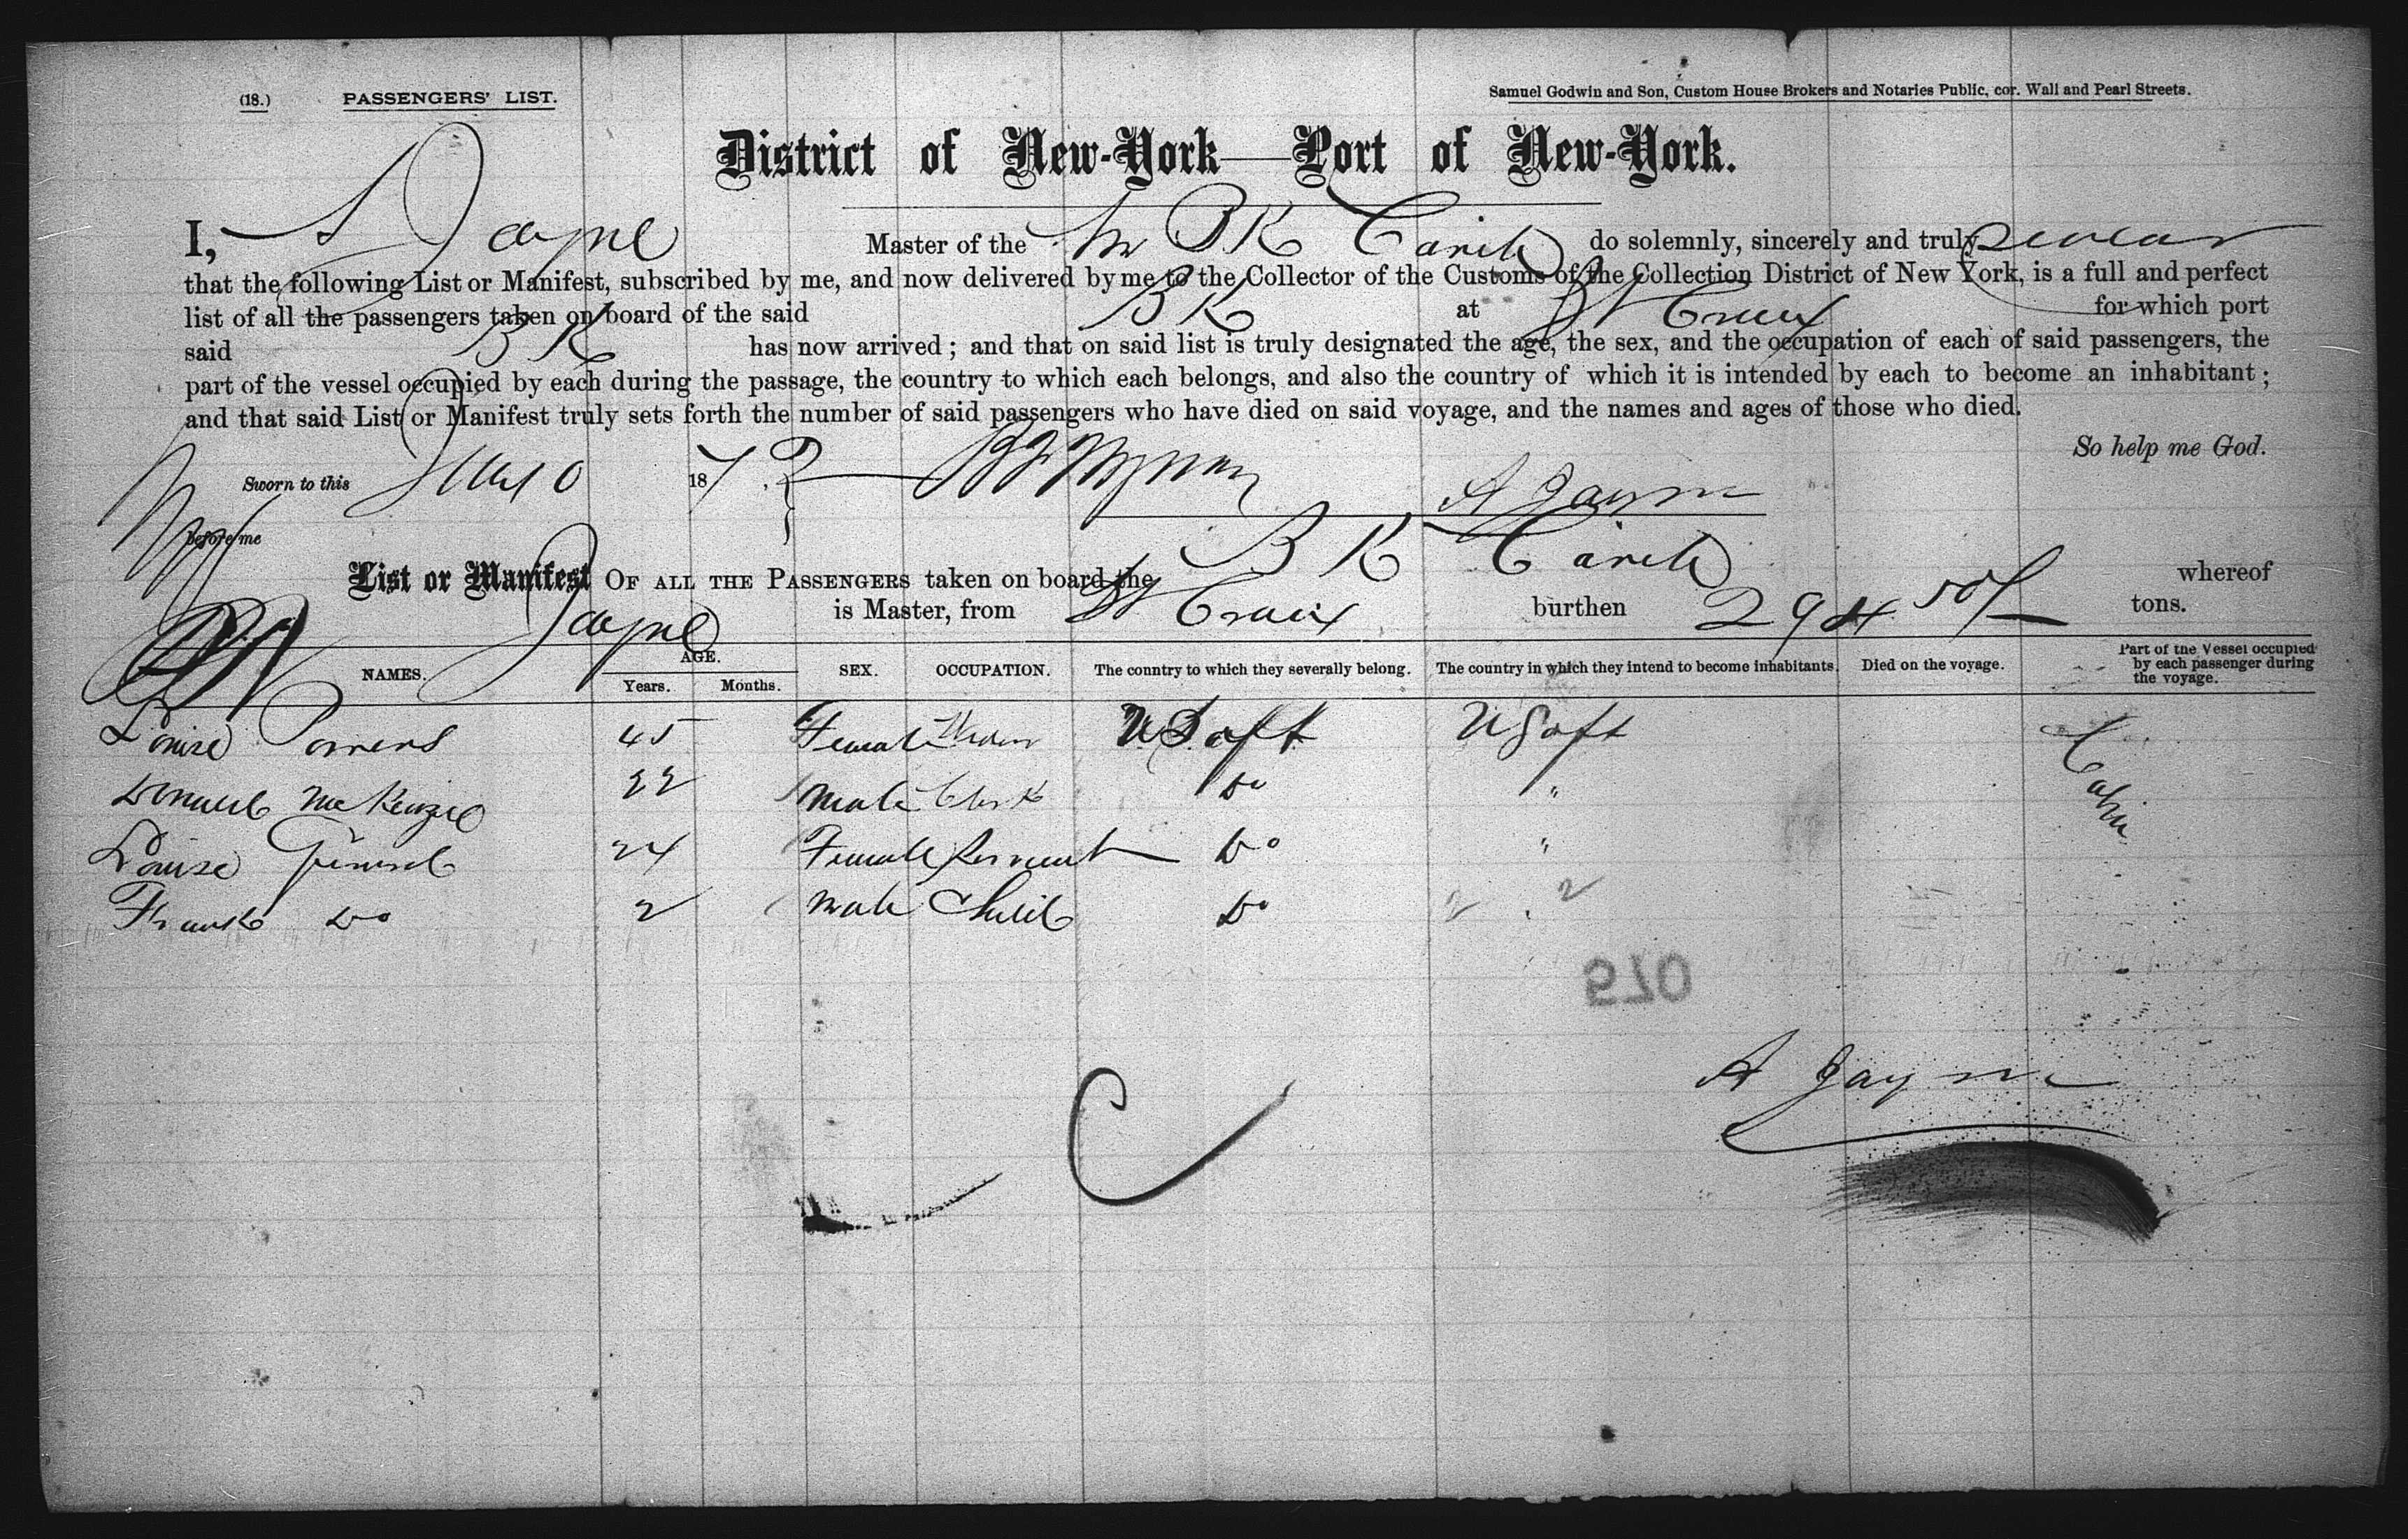 (18.) PASSENGERS' LIST.
Samuel Godwin and Son, Custom House Brokers and Notaries Public, cor. Wall and Pearl Streets.
District of New-York—Port of New-York.
I, A Jayne Master of the B K do solemnly, sincerely and truly swear
that the following List or Manifest, subscribed by me, and now delivered by me to the Collector of the Customs of the Collection District of New York, is a full and perfect
list of all the passengers taken on board of the said B K at St Croix for which port
said B K has now arrived; and that on said list is truly designated the age, the sex, and the occupation of each of said passengers, the
part of the vessel occupied by each during the passage, the country to which each belongs, and also the country of which it is intended by each to become an inhabitant;
and that said List or Manifest truly sets forth the number of said passengers who have died on said voyage, and the names and ages of those who died.
So help me God.
Sworn to this 187
before me
A Jayne
List or Manifest OF ALL THE PASSENGERS taken on board the B K whereof
Jayne is Master, from St Croix burthen 294 tons.
NAMES. AGE. Years. Months. SEX. OCCUPATION. The country to which they severally belong. The country in which they intend to become inhabitants. Died on the voyage. Part of the Vessel occupied by each passenger during the voyage.
Louise 45 Female U S of A U S of A Cabin
Donald McKenzie 22 Male Clerk Do "
Louise 24 Female Servant Do "
Frank Do 2 Male Child Do
2 2
A Jayne